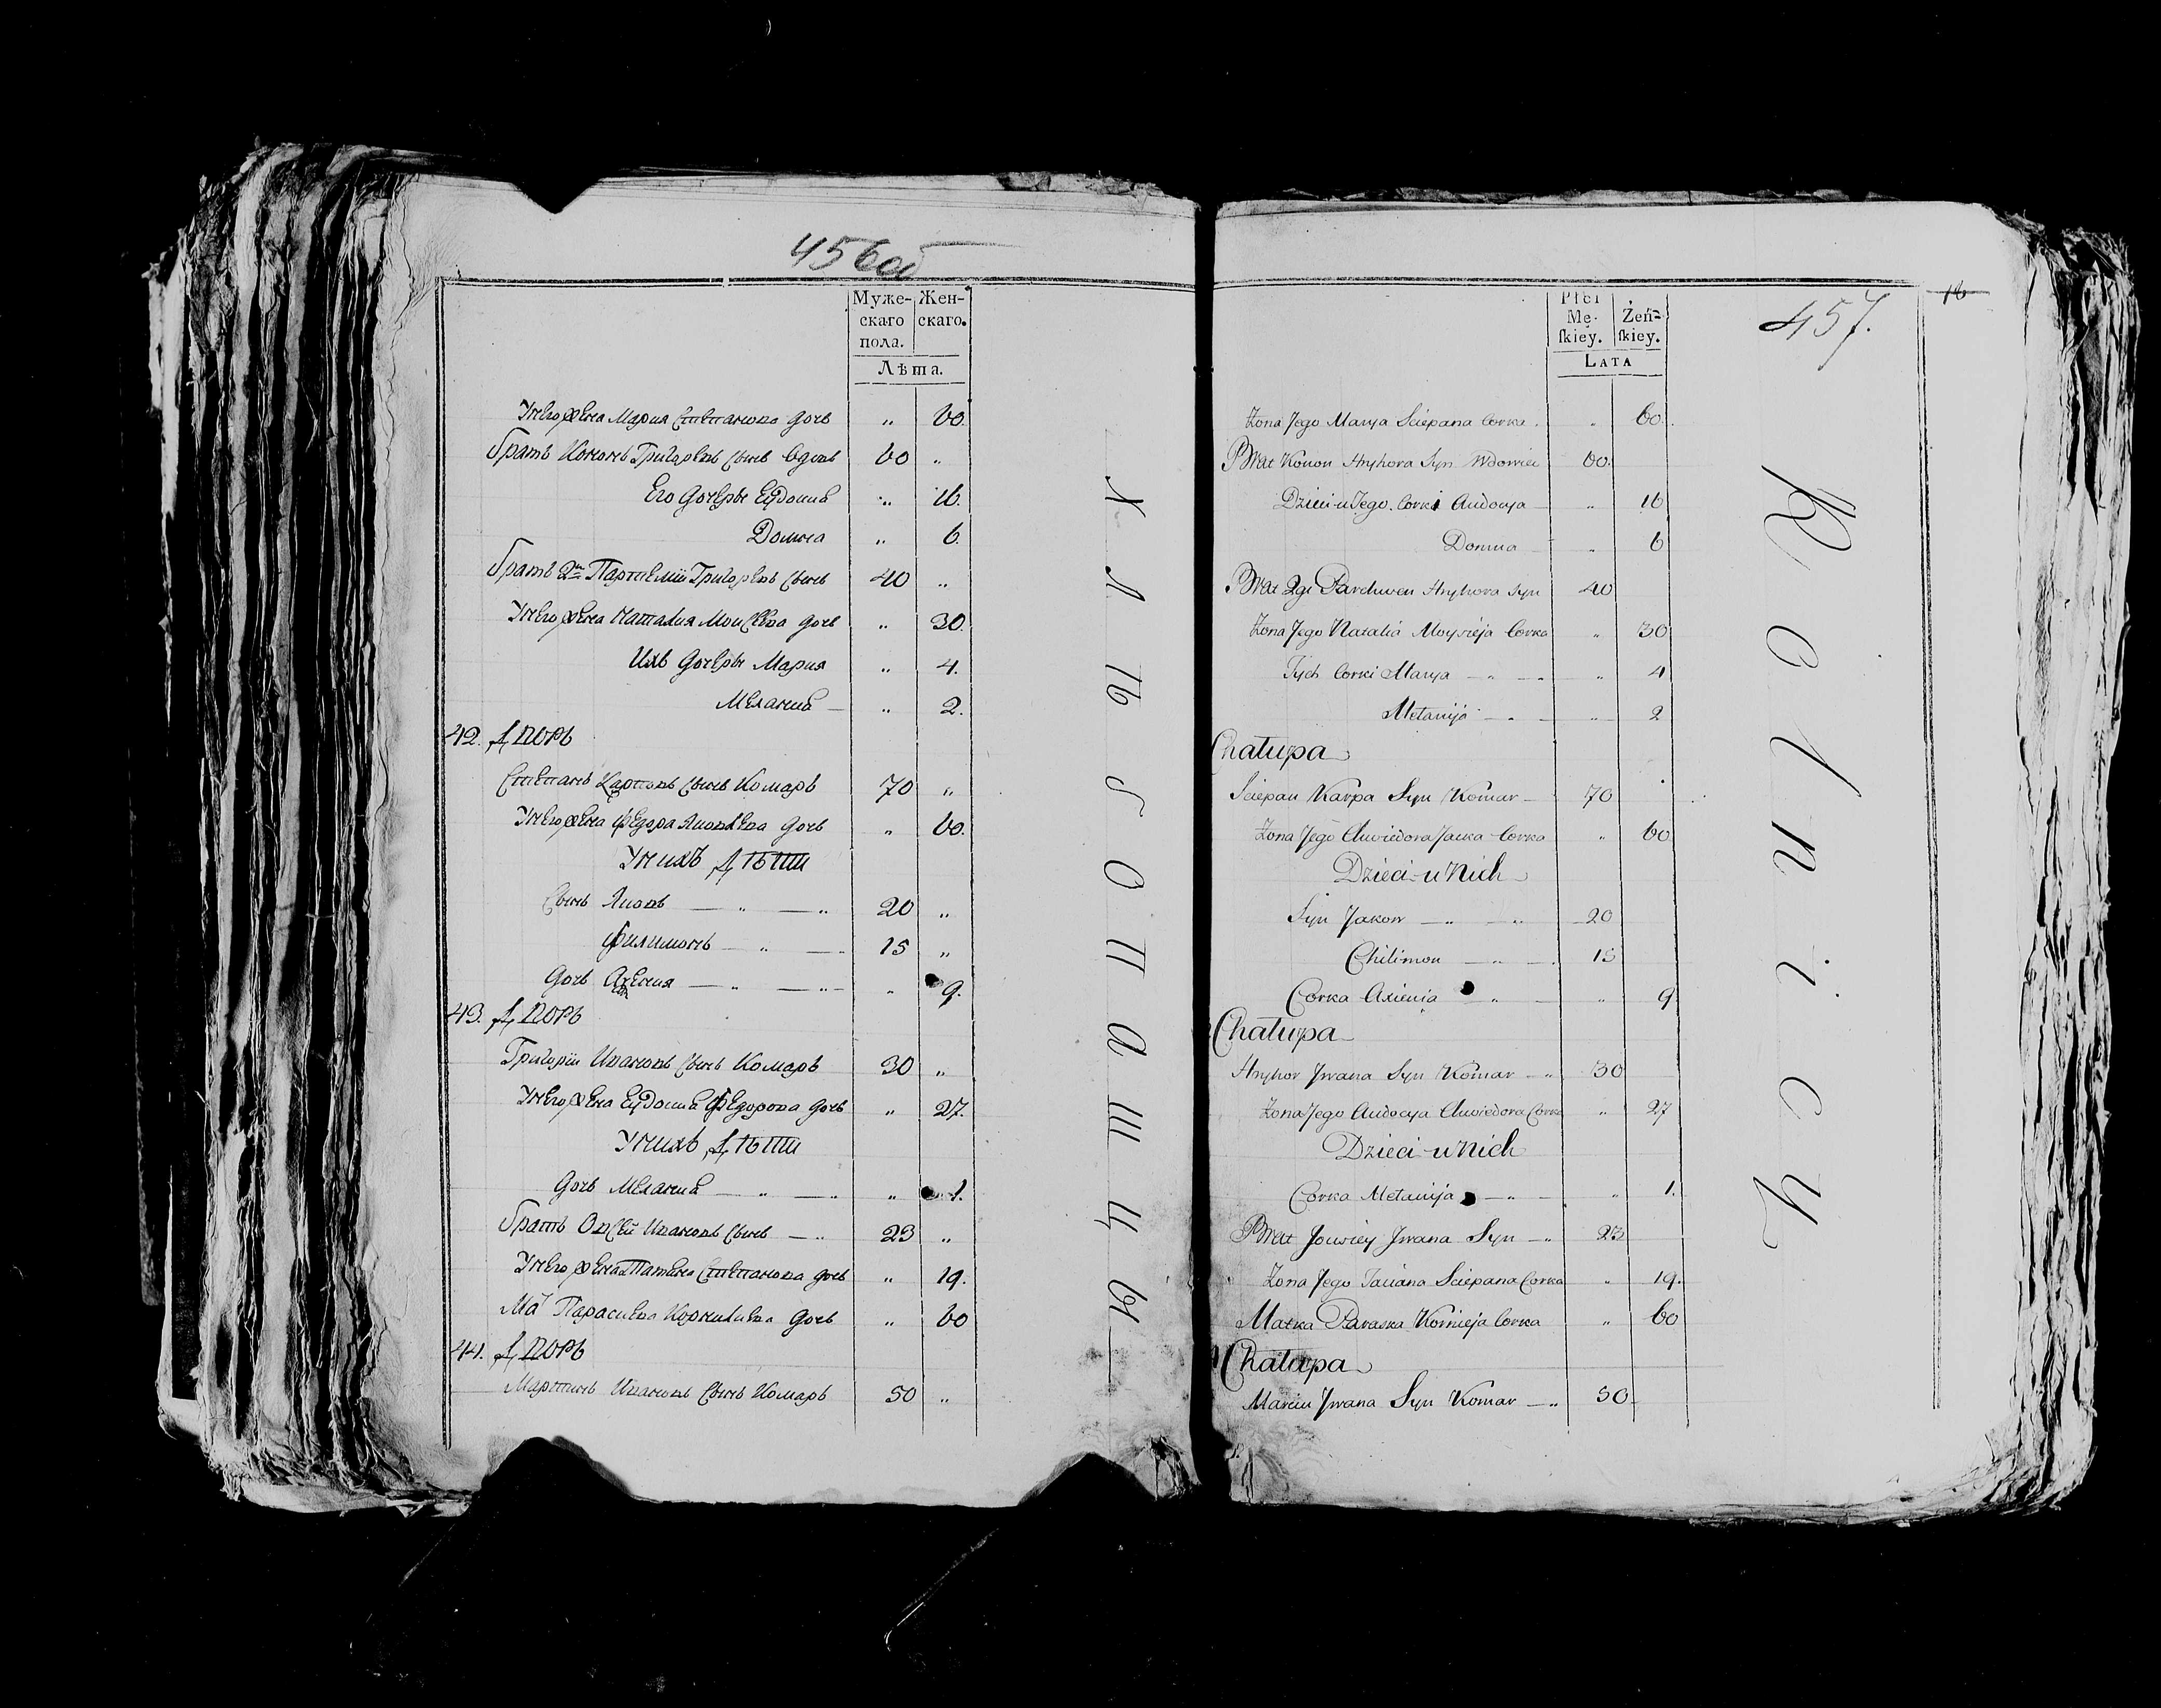 456об
Муже- Жен-
скаго скаго.
пола.
Лѣта.
У него жена Мария Степанова дочь " 60.
Братъ Кононъ Григоревъ сынъ вдовъ 60 "
Его дочеры Евдокия " 16.
Домна " 6.
Братъ 2й Парфемій Григоревъ сынъ 40 "
У него жена Наталия Моисѣева дочь " 30.
Ихъ дочеры Мария " 4.
Мелания — " 2.
42. Дворъ
Степанъ Карповъ сынъ Комаръ 70 "
У него жена Федора Яковлева дочь " 60.
У нихъ дѣти
Сынъ Яковъ — " — " 20 "
Филимонъ — " — " 15 "
Дочь Аксения — " — " " 9.
43. Дворъ
Григорій Ивановъ сынъ Комаръ 30 "
У него жена Евдокия Федорова дочь " 27.
У нихъ дѣти
Дочь Мелания — " — " " 1.
Братъ Овсей Ивановъ сынъ — " 23 "
У него жена Татьяна Степанова дочь " 19.
Ма Параскева Корнилиева дочь " 60
44. Дворъ
Мартинъ Ивановъ сынъ Комаръ 50 "
Хлѣбопашцы
Płci
Mę- Żeń-
ſkiey. ſkiey.
LATA
457.
16
Zona Jego Marya Sciepana Corka " 60.
Brat Konon Hryhora Syn Wdowiec 60.
Dzieci u Jego Corki Audocya — " 16
Domna — " 6
Brat 2gi Parchwen Hryhora Syn 40
Zona Jego Natalia Moysieja Corka " 30
Tych Corki Marya — " — " 4
Mełanija — " — " 2
Chałupa
Sciepan Karpa Syn Komar — 70
Zona Jego Chwiedora Jacka Corka " 60
Dzieci u Nich
Syn Jakow — " — " 20
Chilimon — " — 15
Corka Axienia " — " 9
Chałupa
Hryhor Jwana Syn Komar — " 30
Zona Jego Audocya Chwiedora Corka " 27
Dzieci u Nich
Corka Mełanija — " — " 1.
Brat Jowsiey Jwana Syn — " 23
Zona Jego Taciana Sciepana Corka " 19.
Matka Paraska Kornieja Corka " 60
Chałupa
Marcin Jwana Syn Komar — " 50
Rolnicy